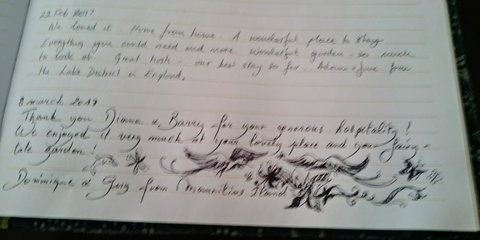 22 Feb 2017
We loved it Home from home. A wonderful place to stay
Everything you could need and more wonderful garden - so much
to look at Great hosts - our best stay so far. from
the Lake District in England.
8 march 2017
Thank you & Barry for your generous hospitality!
We enjoyed it very much at your lovely place and your fairy-
tale garden!
Dominique & Guy from Mauritius Island